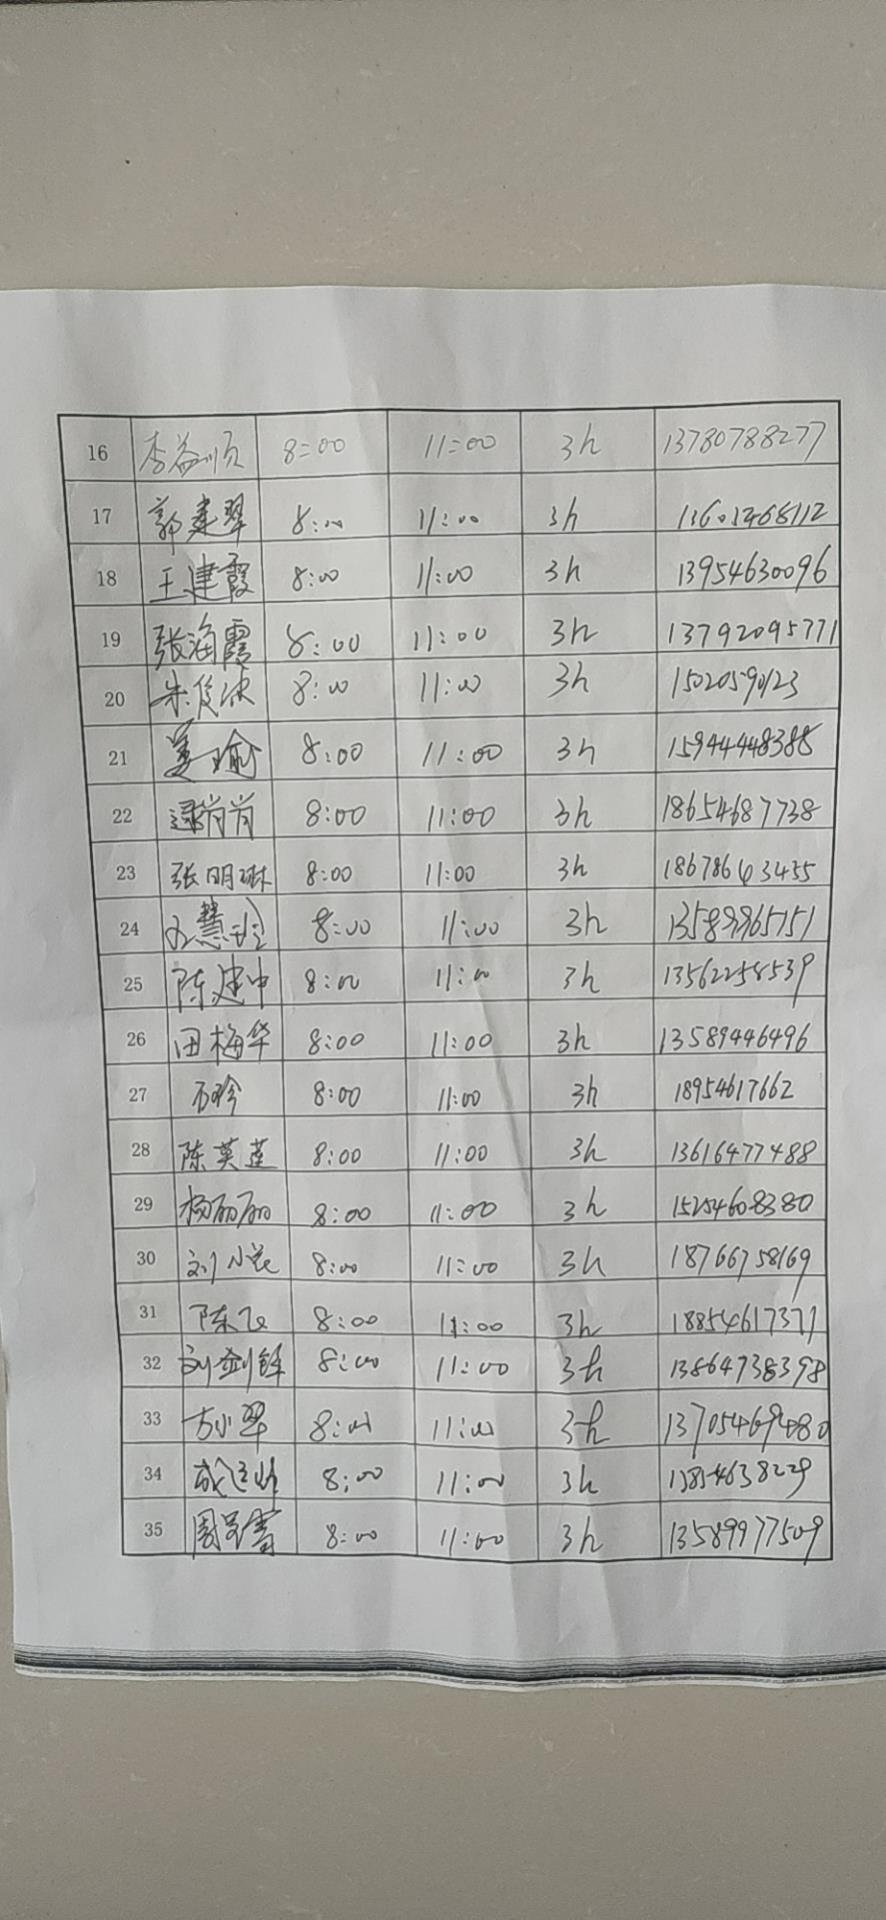 16 李益顺 8:00 11:00 3h 13780788277
17 郭建翠 8:00 11:00 3h
18 王建霞 8:00 11:00 3h 13954630096
19 张海霞 8:00 11:00 3h 13792095771
20 朱俊波 8:00 11:00 3h 15020590123
21 姜瑜 8:00 11:00 3h 15944448388
22 逯肖肖 8:00 11:00 3h 18654687738
23 张明琳 8:00 11:00 3h 18678643455
24 8:00 11:00 3h 13589965151
25 陈建中 8:00 11:00 3h 13562258539
26 田梅华 8:00 11:00 3h 13589446496
27 石玲 8:00 11:00 3h 18954617662
28 陈英莲 8:00 11:00 3h 13616477488
29 杨丽丽 8:00 11:00 3h 15254608380
30 8:00 11:00 3h 18766758169
31 陈飞 8:00 11:00 3h 18854617371
32 8:00 11:00 3h 13864738398
33 方小翠 8:00 11:00 3h 13705469480
34 8:00 11:00 3h 13854638229
35 8:00 11:00 3h 13589977509